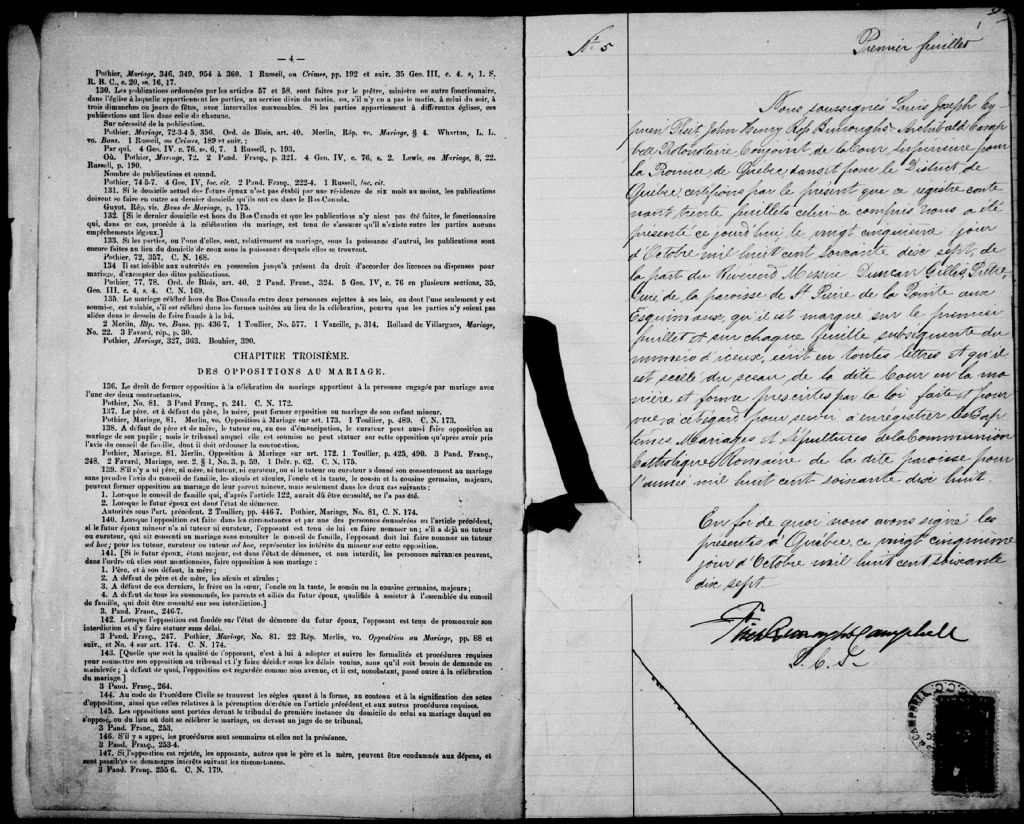 — 4 —
Pothier, Mariage, 346, 349, 954 à 360. 1 Russell, on Crimes, pp. 192 et suiv. 35 Geo. III, c. 4. s, 1. S.
R. B. C., c. 20, ss. 16, 17.
130. Les publications ordonnées par les articles 57 et 58, sont faites par le prêtre, ministre ou autre fonctionnaire,
dans l'église à laquelle appartiennent les parties, au service divin du matin, ou, s'il n'y en a pas le matin, à celui du soir, à
trois dimanches ou jours de fêtes, avec intervalles convenables. Si les parties appartiennent à différentes églises, ces
publications ont lieu dans celle de chacune.
Sur nécessité de la publication.
Pothier, Mariage, 72-3 4 5, 356. Ord. de Blois, art. 40. Merlin, Rép. vo. Mariage, § 4. Wharton, L. L.
vo. Bans. 1 Russell, on Crimes, 189 et suiv. :
Par qui. 4 Geo. IV. c. 76, ss. 6, 7. 1 Russell, p. 193.
Où. Pothier, Mariage, 72. 2 Pand. Franç., p. 321. 4 Geo. IV, c. 76, s. 2. Lewis, on Mariage, 8, 22.
Russell, p. 190.
Nombre de publications et quand.
Pothier, 74 5-7. 4 Geo. IV, loc. cit. 2 Pand. Franç., 222-4. 1 Russell, loc. cit.
131. Si le domicile actuel des futurs époux n'est pas établi par une résidence de six mois au moins, les publications
doivent se faire en outre au dernier domicile qu'ils ont eu dans le Bas-Canada.
Guyot, Rép. vis. Bans de Mariage, p. 175.
132. [Si le dernier domicile est hors du Bas Canada et que les publications n'y aient pas été faites, le fonctionnaire
qui, dans ce cas, procède à la célébration du mariage, est tenu de s'assurer qu'il n'existe entre les parties aucuns
empêchements légaux.]
133. Si les parties, ou l'une d'elles, sont, relativement au mariage, sous la puissance d'autrui, les publications sont
encore faites au lieu du domicile de ceux sous la puissance desquels elles se trouvent.
Pothier, 72, 357. C. N. 168.
134 Il est loisible aux autorités en possession jusqu'à présent du droit d'accorder des licences ou dispenses pour
mariage, d'exempter des dites publications.
Pothier, 77, 78. Ord. de Blois, art. 40. 2 Pand. Franç., 324. 5 Geo. IV, c. 76 en plusieurs sections, 35.
Geo. III, c. 4, s. 4. C. N. 169.
135. Le mariage célébré hors du Bas-Canada entre deux personnes sujettes à ses lois, ou dont l'une seulement y est
soumise, est valable, s'il est célébré dans les formes usitées au lieu de la célébration, pourvu que les parties n'y soient pas
allées dans le dessein de faire fraude à la loi.
2 Merlin, Rép. vo. Bans, pp. 436 7. 1 Toullier, No. 577. 1 Vazeille, p. 314. Rolland de Villargues, Mariage,
No. 22. 3 Favard, rép., p. 30.
Pothier, Mariage, 327, 363. Bouhier, 390.
CHAPITRE TROISIÈME.
DES OPPOSITIONS AU MARIAGE.
136. Le droit de former opposition à la célébration du mariage appartient à la personne engagée par mariage avec
l'une des deux contractantes.
Pothier, No. 81. 3 Pand Franç., p. 241. C. N. 172.
137. Le père, et à défaut du père, la mère, peut former opposition au mariage de son enfant mineur.
Pothier, Mariage, 81. Merlin, vo. Opposition à Mariage sur art. 173. 1 Toullier, p. 489. C. N. 173.
138. A défaut de père et de mère, le tuteur ou, au cas d'émancipation, le curateur peut aussi faire opposition au
mariage de son pupille ; mais le tribunal auquel elle est soumise ne peut statuer sur cette opposition qu'après avoir pris
l'avis du conseil de famille, dont il doit ordonner la convocation.
Pothier, Mariage, 81. Merlin, Opposition à Mariage sur art. 172. 1 Toullier, p. 425, 490. 3 Pand. Franç.,
248. 2 Favard, Mariage, sec. 2. § 1, No. 3, p. 59. 1 Delv. p. 62. C. N. 175.
139. S'il n'y a ni père, ni mère, ni tuteur, ni curateur, ou si le tuteur ou curateur a donné son consentement au mariage
sans prendre l'avis du conseil de famille, les aïeuls et aïeules, l'oncle et la tante, le cousin et la cousine germains, majeurs,
peuvent former opposition au mariage de leur parent mineur, mais seulement dans les deux cas suivants :
1. Lorsque le conseil de famille qui, d'après l'article 122, aurait dû être consulté, ne l'a pas été.
2. Lorsque le futur époux est dans l'état de démence.
Autorités sous l'art. précédent. 2 Toullier, pp. 446-7. Pothier, Mariage, No. 81, C. N. 174.
140. Lorsque opposition est faite dans les circonstances et par une des personnes énumérées en l'article précédent,
si le futur époux mineur n'a ni tuteur ni curateur, l'opposant est tenu de lui en faire nommer un ; s'il a déjà un tuteur
ou curateur, qui ait consenti au mariage sans consulter le conseil de famille, l'opposant doit lui faire nommer un tuteur
ad hoc ; pour les tuteur, curateur ou tuteur ad hoc, représenter les intérêts du mineur sur cette opposition.
141. [Si le futur époux, étant majeur, est dans l'état de démence, et non interdit, les personnes suivantes peuvent,
dans l'ordre où elles sont mentionnées, faire opposition à son mariage :
1. Père, et à son défaut, la mère ;
2. A défaut de père et de mère, les aïeuls et aïeules ;
3. A défaut de ces derniers, le frère ou la sœur, l'oncle ou la tante, le cousin ou la cousine germains, majeurs ;
4. A défaut de tous les susnommés, les parents et alliés du futur époux, qualifiés à assister à l'assemblée du conseil
de famille, qui doit être consulté sur son interdiction.]
3. Pand. Franc., 246-7.
142. Lorsque l'opposition est fondée sur l'état de démence du futur époux, l'opposant est tenu de promouvoir son
interdiction et d'y faire statuer sans délai.
3 Pand. Franç., 247. Pothier, Mariage, No. 81. 22 Rép. Merlin, vo. Opposition au Mariage, pp. 88 et
suiv., et No. 4 sur art. 174. C. N. 174.
143. [Quelle que soit la qualité de l'opposant, c'est à lui à adopter et suivre les formalités et procédures requises
pour soumettre son opposition au tribunal et l'y faire décider sous les délais voulus, sans qu'il soit besoin de demande en
mainlevée ; à défaut de quoi, l'opposition est regardée comme non avenue, et il est, nonobstant, passé outre à la célébration
du mariage.]
3 Pand. Franç., 264.
144. Au code de Procédure Civile se trouvent les règles quant à la forme, au contenu et à la signification des actes
d'opposition, ainsi que celles relatives à la péremption décrétée en l'article précédent et aux autres procédures requises.
145. Les oppositions sont portées devant le tribunal de première instance du domicile de celui au mariage duquel on
s'oppose, ou du lieu où doit se célébrer le mariage, ou devant un juge de ce tribunal.
3 Pand. Franc., 253.
146. S'il y a appel, les procédures sont sommaires et elles ont la préséance.
3 Pand. Franç., 253-4.
147. Si l'opposition est rejetée, les opposants, autres que le père et la mère, peuvent être condamnés aux dépens, et
sont passibles de dommages intérêts suivant les circonstances.
3 Pand. Franç. 255 6. C. N. 179.
Nº 5
Premier feuillet
Nous soussignés Louis Joseph Cy-
prien Fiset John Henry Ross Burroughs Archibald Camp
bell Protonotaire Conjoint de la Cour Supérieure pour
la Province de Québec dans et pour le District de
Québec certifions par le present que ce registre conte
nant trente feuillets celui-ci compris nous a été
présenté ce jourd'hui le vingt cinquième jour
d'Octobre mil huit cent soixante dix sept, de
la part du Révérend Messire Duncan Gillis Prêtre,
curé de la paroisse de St Pierre de la Pointe aux
Esquimaux, qu'il est marqué sur le premier
feuillet et sur chaque feuille subséquente du
numéro d'iceux, écrit en toutes lettres et qu'il
est scellé du sceau de la dite Cour en la ma
nière et forme prescrites par la loi faite et pour
vue à cet égard pour servir à enregistrer les Bap
têmes Mariages et Sépultures de la Communion
Catholique Romaine de la dite paroisse pour
l'année mil huit cent soixante dix huit.
En foi de quoi nous avons signé les
présentes à Québec ce vingt cinquième
jour d'Octobre mil huit cent soixante
dix sept
Fiset Burroughs Campbell
P. C. S.